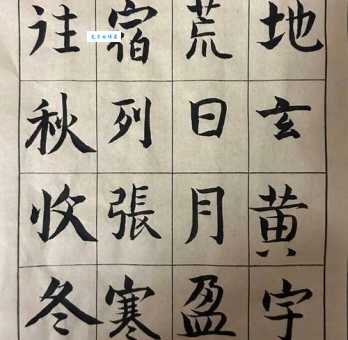 地玄黄宇
荒日月盈
宿列張寒
往秋收冬